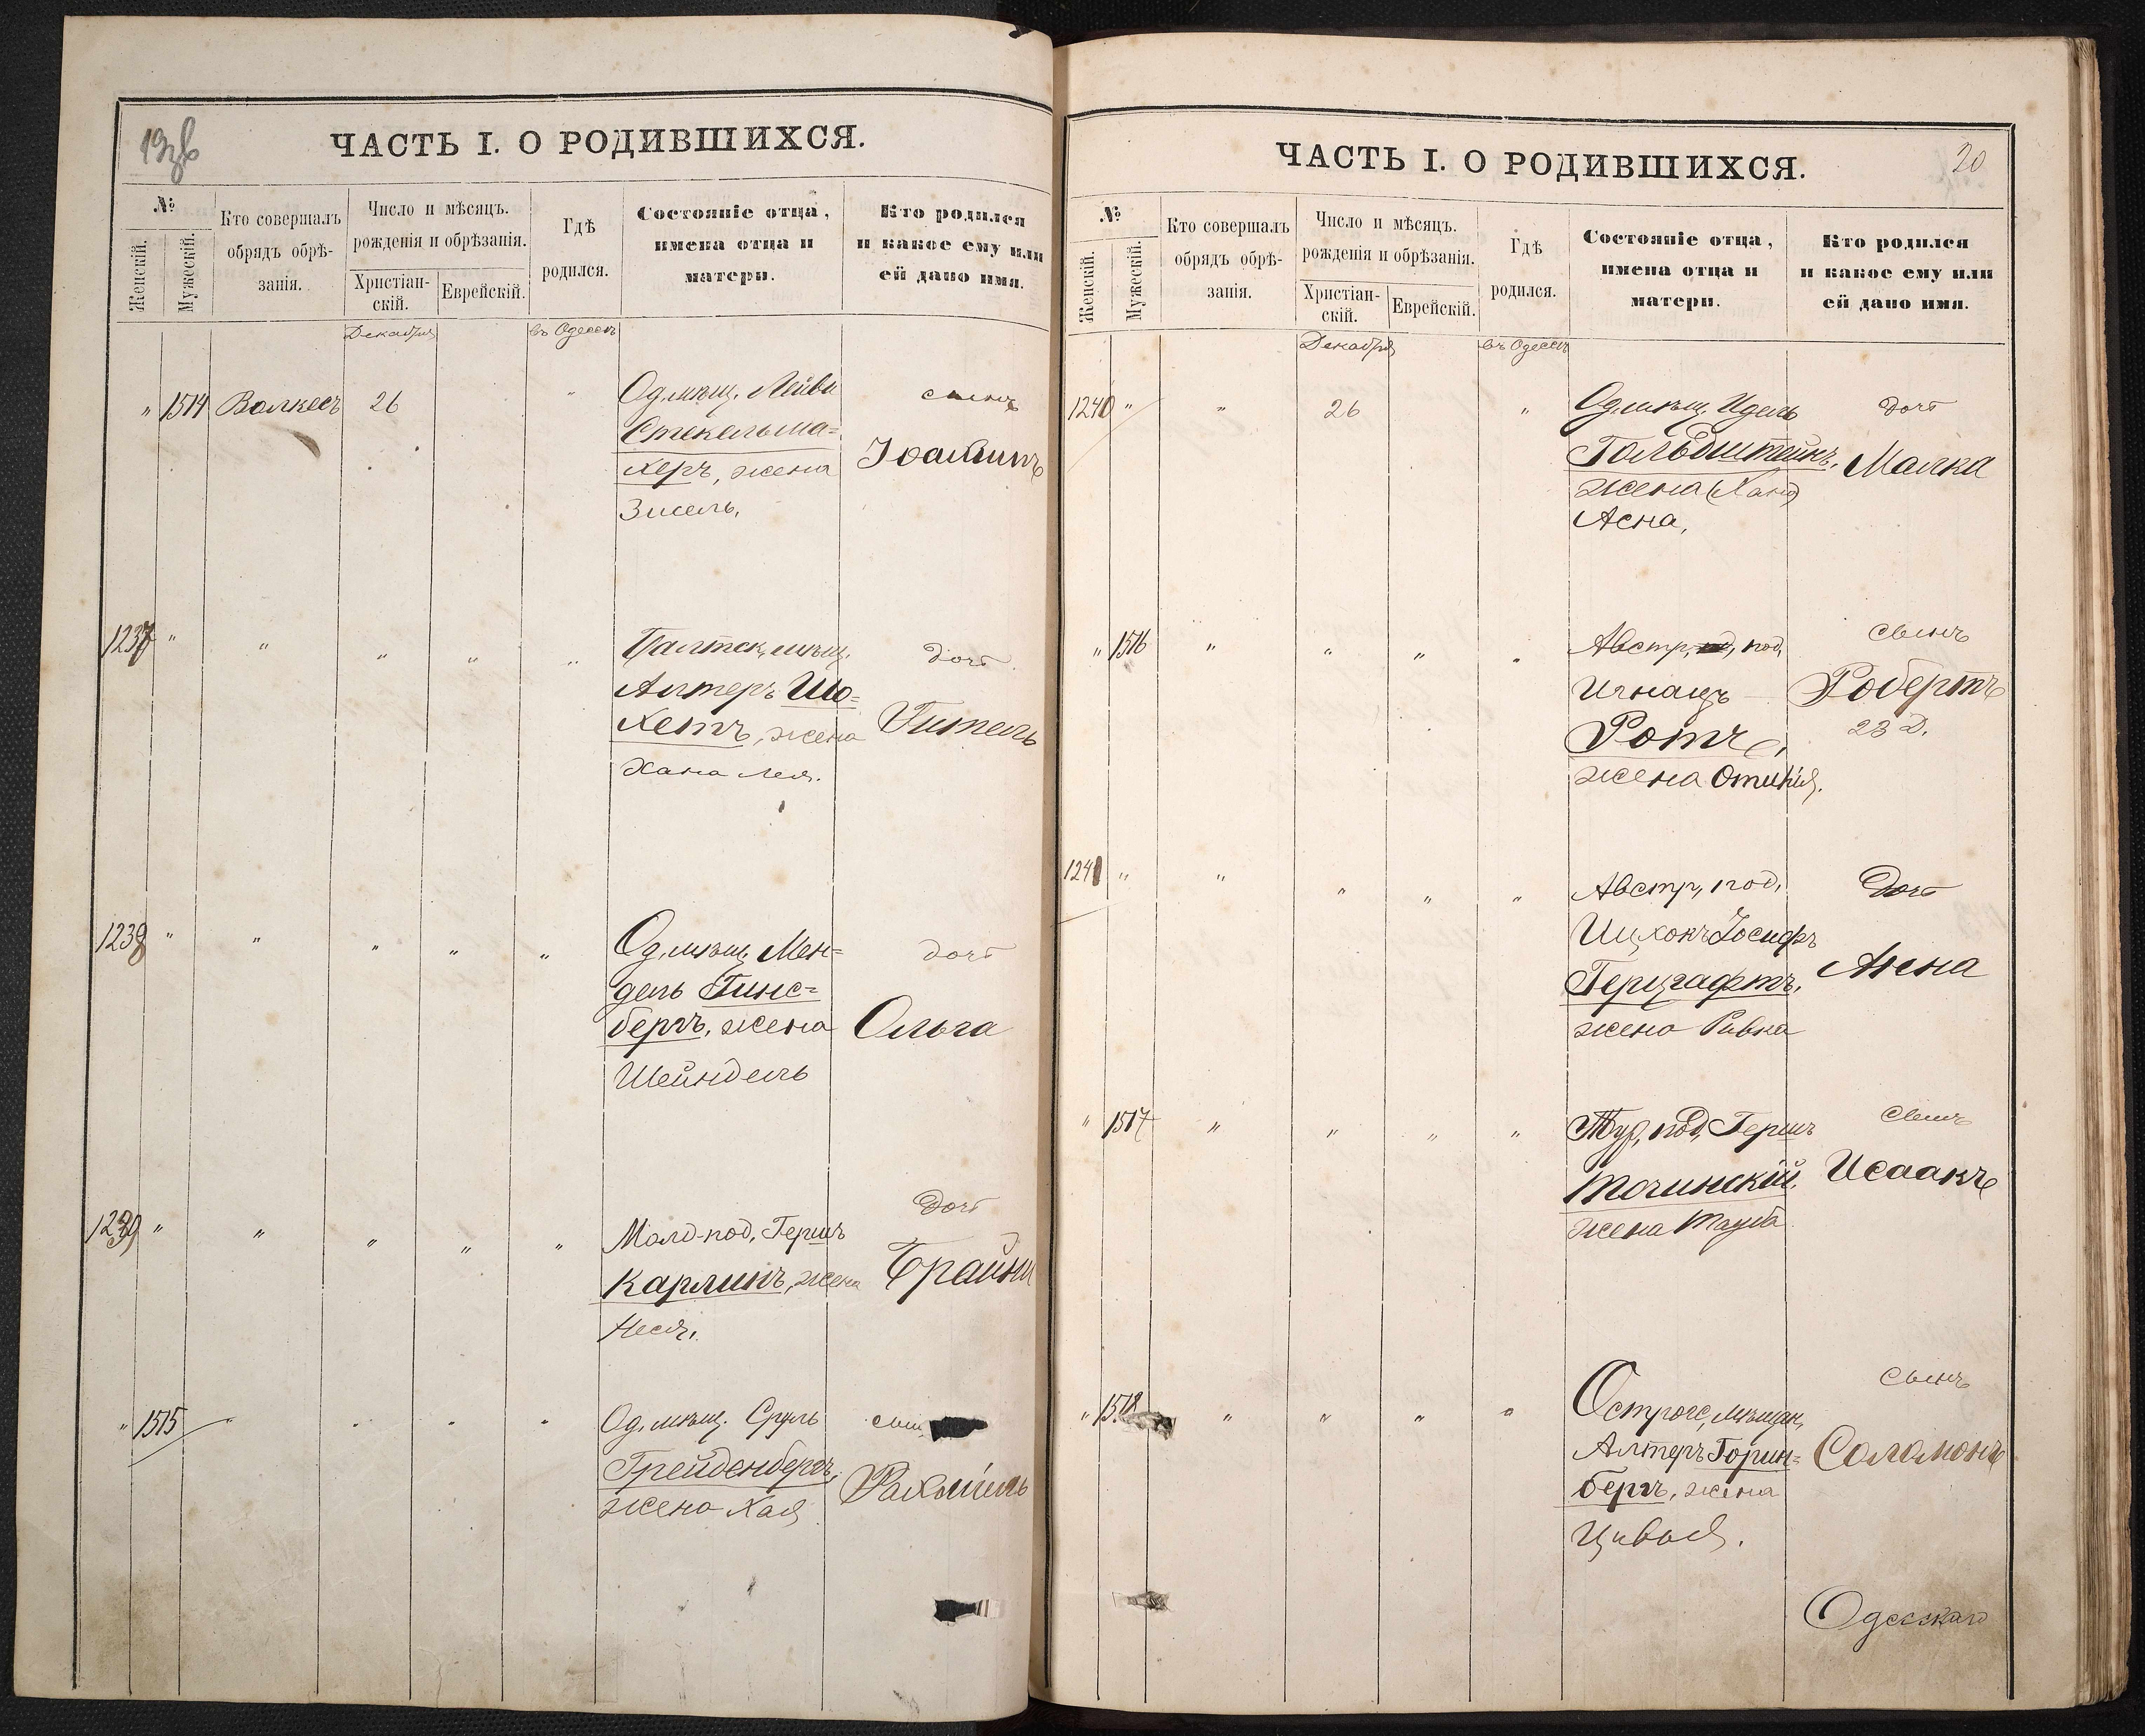 19 об
ЧАСТЬ I. О РОДИВШИХСЯ.
№
Женскій.
Мужескій.
Кто совершалъ
обрядъ обрѣ-
занія.
Число и мѣсяцъ.
рожденія и обрѣзанія.
Христіан-
скій.
Еврейскій.
Гдѣ
родился.
Состояніе отца,
имена отца и
матери.
Кто родился
и какое ему или
ей дано имя.
Декабря
въ Одессѣ
" 1514 Валкесъ 26 "
Од. мѣщ. Лейви
Стекельма=
херъ, жена
Зисель.
сынъ
Іоахимъ
1237 " " " " "
Балтск. мѣщ.
Алтеръ Шо=
хетъ, жена
Хана Лея.
дочь
Гитель
1238 " " " " "
Од. мѣщ. Мен=
дель Гинс=
бергъ, жена
Шейндель
дочь
Ольга
1239 " " " " "
Молд. под. Гершъ
Карлинъ, жена
Неся.
дочь
Брайна
" 1515 " " " "
Од. мѣщ. Сруль
Грейденбергъ,
жена Хая
сынъ
Рахміель
ЧАСТЬ I. О РОДИВШИХСЯ.
20
№
Женскій.
Мужескій.
Кто совершалъ
обрядъ обрѣ-
занія.
Число и мѣсяцъ.
рожденія и обрѣзанія.
Христіан-
скій.
Еврейскій.
Гдѣ
родился.
Состояніе отца,
имена отца и
матери.
Кто родился
и какое ему или
ей дано имя.
Декабря
въ Одессѣ
1240 " " 26 "
Од. мѣщ. Идель
Гольдштейнъ,
жена (Хана)
Асна,
дочь
Малка
" 1516 " " " "
Австр. под.
Игнацъ
Ротъ,
жена Отилія.
сынъ
Робертъ
23 Д.
1241 " " " " "
Австр. под.
Ицхокъ Іосифъ
Герцграфтъ,
жена Ривка
дочь
Анна
" 1517 " " " "
Тур. под. Гершъ
Точинскій,
жена Тауба
сынъ
Исаакъ
" 1518 " " " "
Острогс. мѣщан.
Алтеръ Горин=
бергъ, жена
Цивья.
сынъ
Соломонъ
Одесскаго